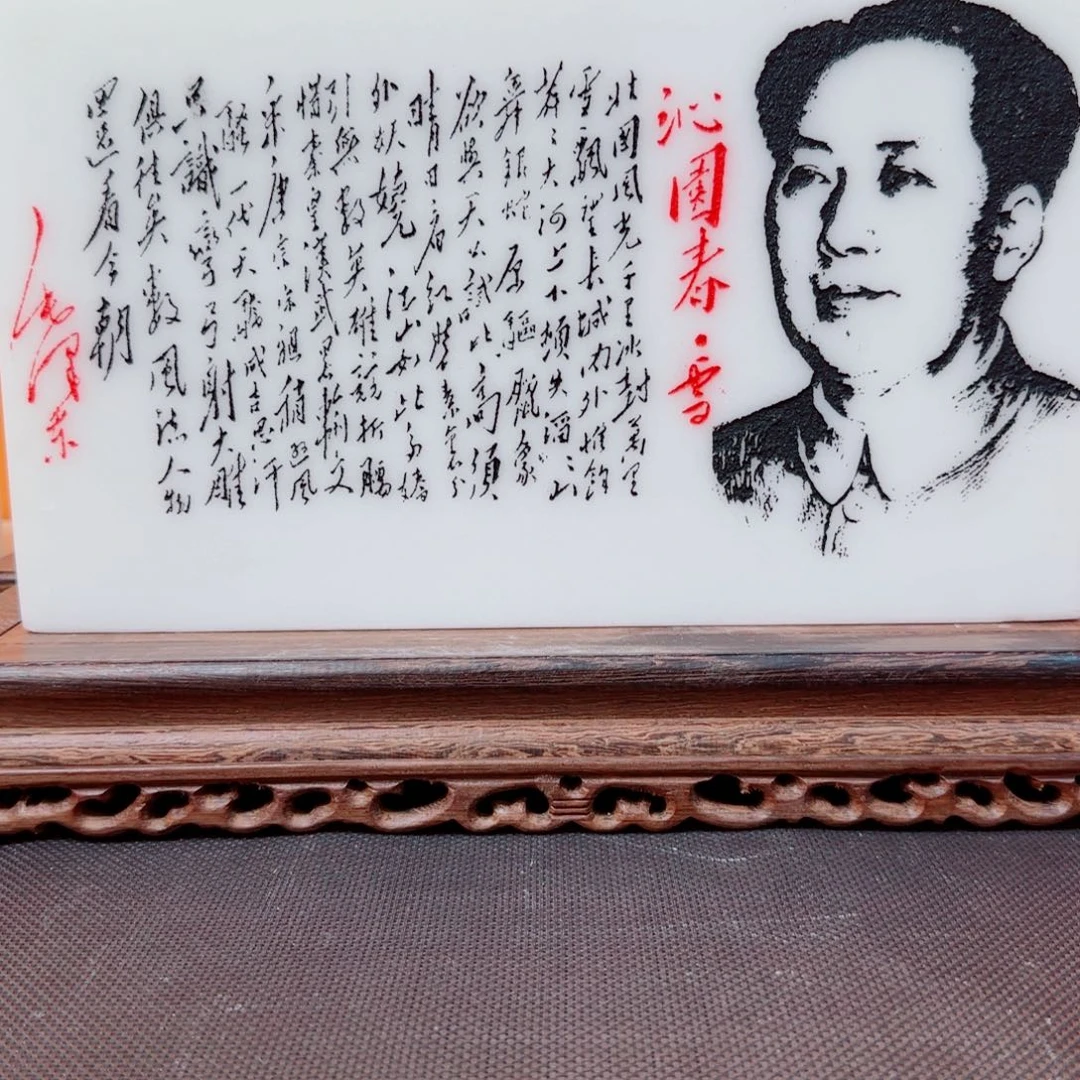 沁園春·雪
北國風光千里冰封萬里
雪飄望长城内外惟餘
莽々大河上下頓失滔々山
舞銀蛇原驅臘象
欲與天公試比高須
晴日看紅裝素裹分
外妖嬈江山如此多嬌
引無數英雄競折腰
惜秦皇漢武畧輸文
采唐宗宋祖稍遜風
騷一代天驕成吉思汗
只識彎弓射大雕
俱往矣數風流人物
還看今朝
毛澤東